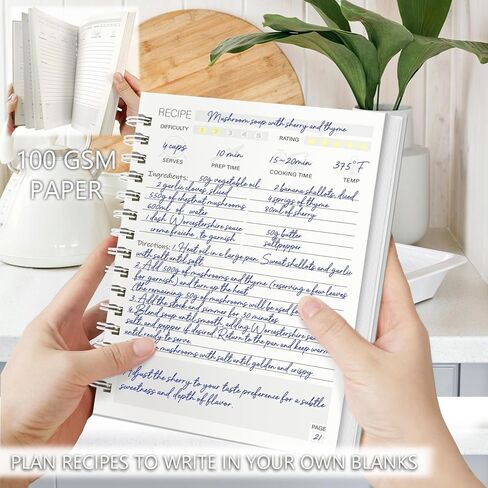 100 GSM
PAPER
RECIPE
Mushroom soup with sherry and thyme
DIFFICULTY
1 2 3 4 5
RATING
4 cups
10 min
15~20min
375°F
SERVES
PREP TIME
COOKING TIME
TEMP
Ingredients: 50g vegetable oil 2 banana shallots, diced
2 garlic cloves, sliced 4 sprigs of thyme
550g of chestnut mushrooms 80ml of sherry
600ml of water
1 dash Worcestershire sauce 50g butter
creme fraiche to garnish salt pepper
Directions: 1. Heat oil in a large pan. Sweat shallots and garlic
with salt until soft.
2. Add 500g of mushrooms and thyme (reserving a few leaves
for garnish) and turn up the heat
(the remaining 50g of mushrooms will be used
3. Add the stock and simmer for 30 minutes.
4. Blend soup until smooth, adding Worcestershire sauce
salt and pepper if desired. Return to the pan and keep warm
until ready to serve.
mushrooms with salt until golden and crispy
Adjust the sherry to your taste preference for a subtle
sweetness and depth of flavor.
PAGE
21
PLAN RECIPES TO WRITE IN YOUR OWN BLANKS